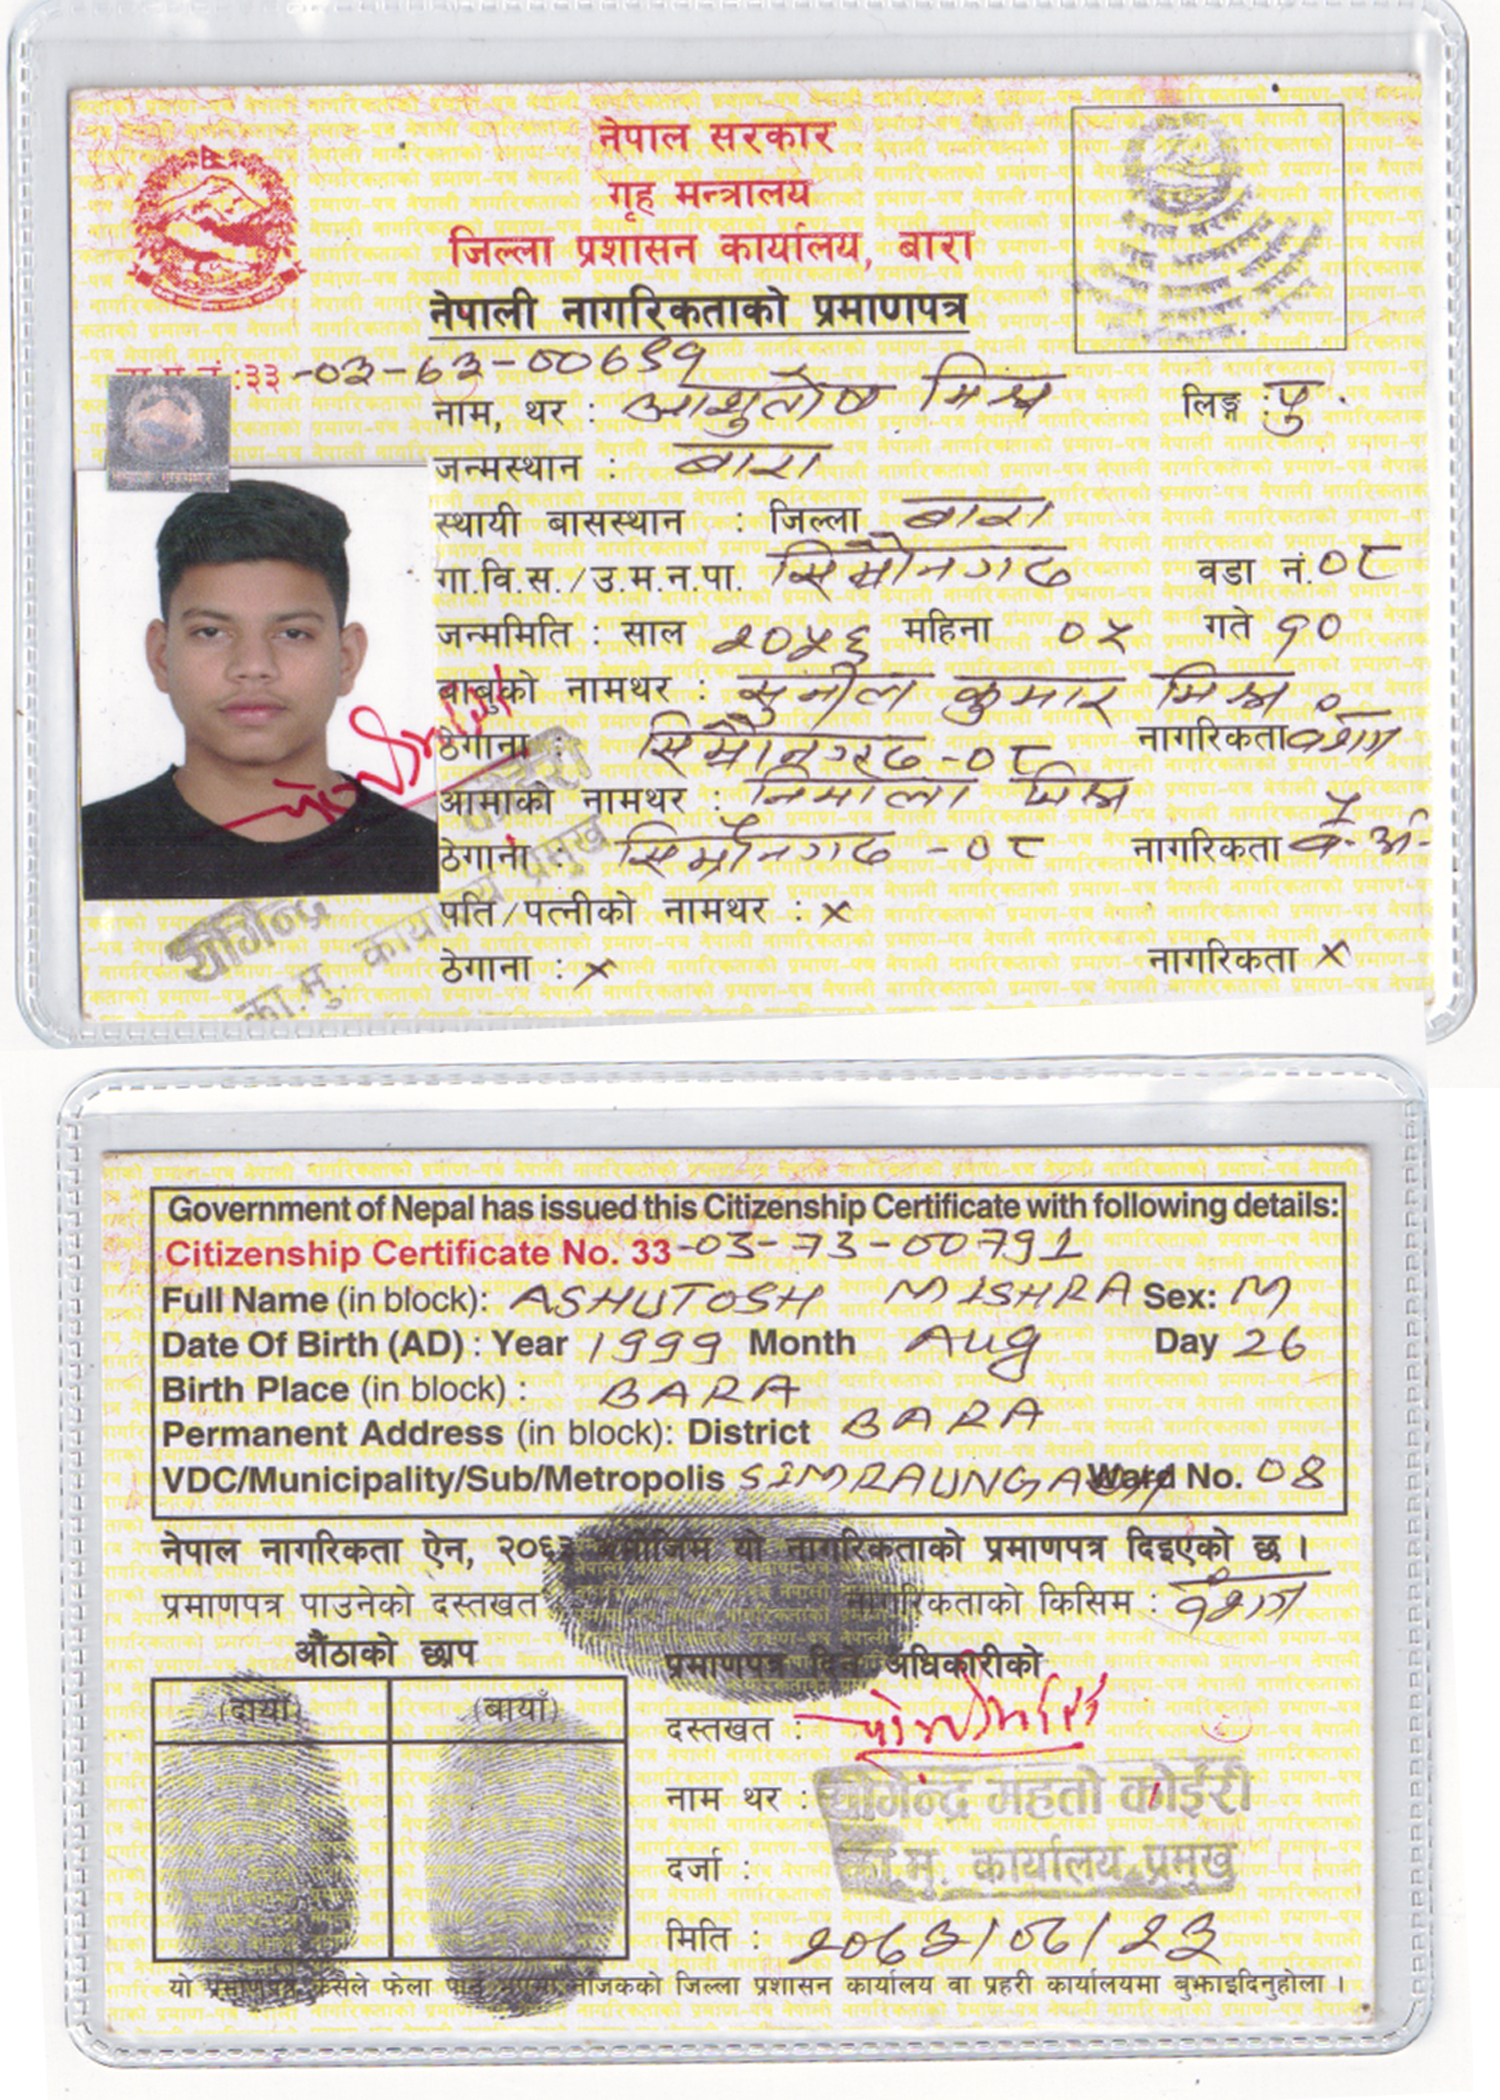 नेपाल सरकार
गृह मन्त्रालय
जिल्ला प्रशासन कार्यालय, बारा
नेपाली नागरिकताको प्रमाणपत्र
:३३-०३-७३-००७९१
नाम, थर : आशुतोष मिश्र लिङ्ग : पु.
जन्मस्थान : बारा
स्थायी बासस्थान : जिल्ला बारा
गा.वि.स./उ.म.न.पा. सिम्रौनगढ वडा नं. ०८
जन्ममिति : साल २०५६ महिना ०५ गते १०
बाबुको नामथर : सुनील कुमार मिश्र
ठेगाना : सिम्रौनगढ-०८ नागरिकता वंशज
आमाको नामथर : निर्माला मिश्र
ठेगाना : सिम्रौनगढ-०८ नागरिकता
पति/पत्नीको नामथर : x
ठेगाना : x नागरिकता x
योगेन्द्र
का.मु. कार्यालय प्रमुख
Government of Nepal has issued this Citizenship Certificate with following details:
Citizenship Certificate No. 33-03-73-00791
Full Name (in block): ASHUTOSH MISHRA Sex: M
Date Of Birth (AD) : Year 1999 Month Aug Day 26
Birth Place (in block) : BARA
Permanent Address (in block): District BARA
VDC/Municipality/Sub/Metropolis SIMRAUNGADH Ward No. 08
नेपाल नागरिकता ऐन, २०६३ बमोजिम यो नागरिकताको प्रमाणपत्र दिइएको छ ।
प्रमाणपत्र पाउनेको दस्तखत नागरिकताको किसिम : वंशज
औंठाको छाप
प्रमाणपत्र दिने अधिकारीको
(दायाँ) (बायाँ)
दस्तखत :
नाम थर : योगेन्द्र महतो कोईरी
दर्जा : का.मु. कार्यालय प्रमुख
मिति : २०७३/०६/२३
यो प्रमाणपत्र कसैले फेला पारे नजिकको जिल्ला प्रशासन कार्यालय वा प्रहरी कार्यालयमा बुझाइदिनुहोला ।